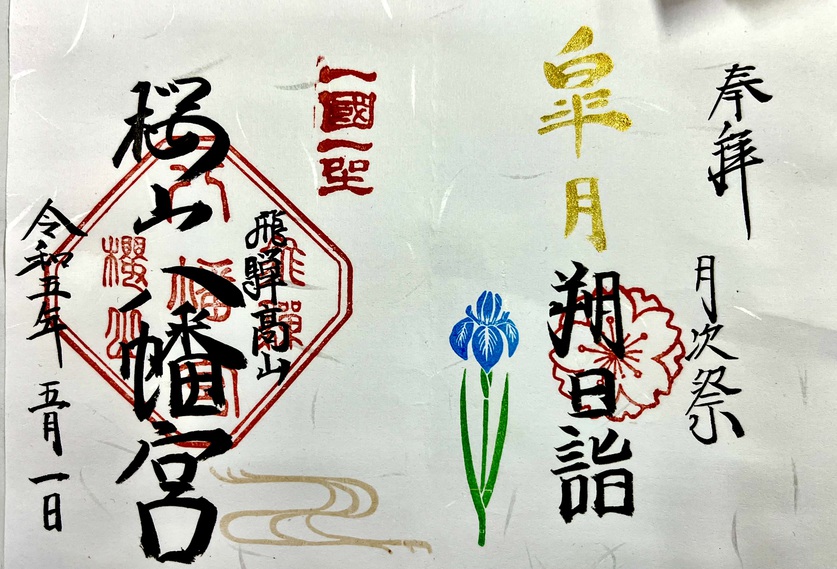 奉拝
月次祭
皐月
朔日詣
一國一社
飛騨高山
桜山八幡宮
令和五年 五月一日